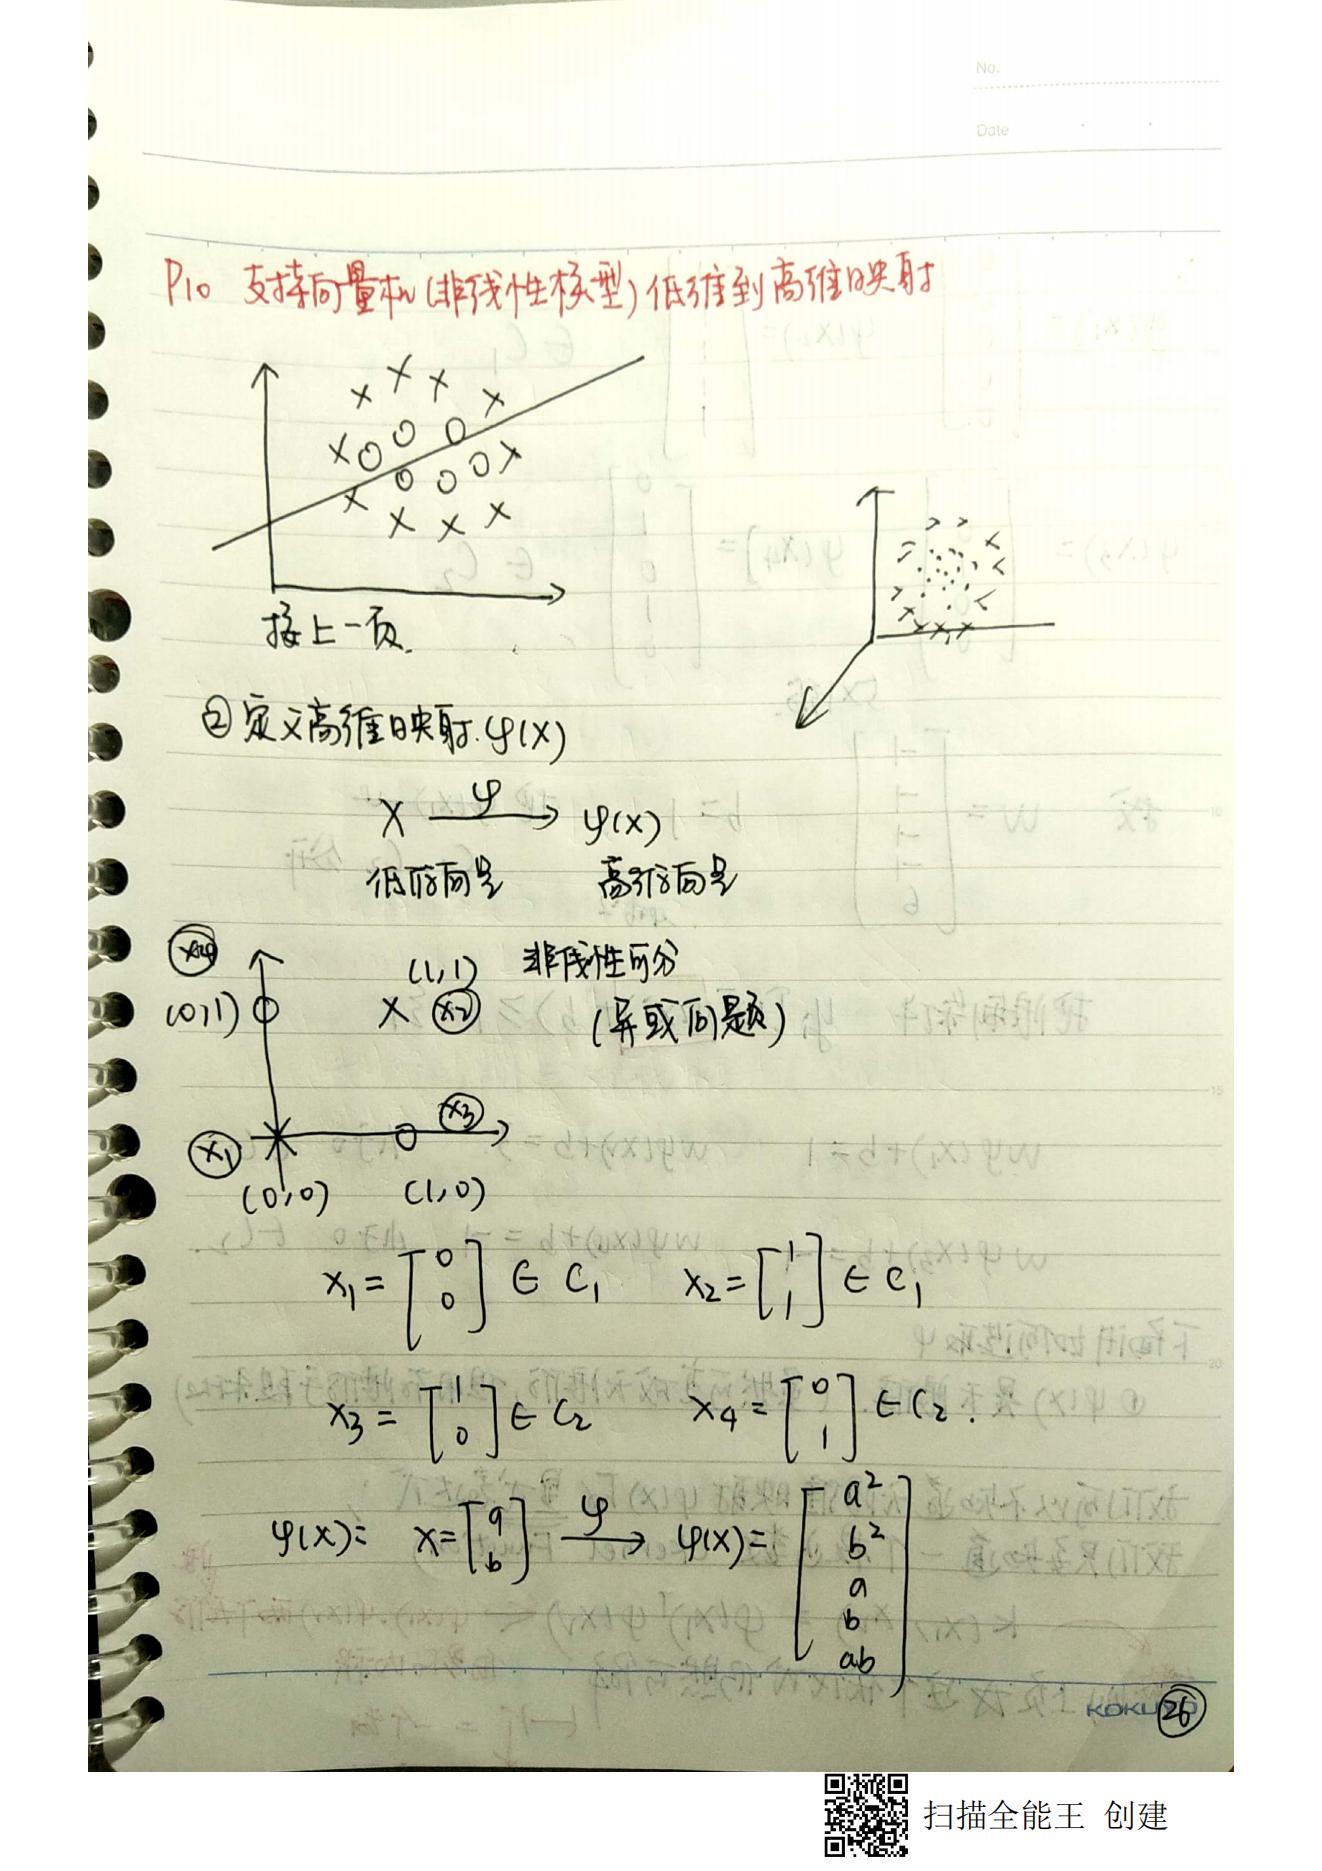 No.
Date
P10 支持向量机(非线性模型)低维到高维映射
接上一页.
②定义高维映射.φ(X)
X φ→ φ(X)
低维向量 高维向量
X4 (1,1) 非线性可分
(0,1) X2 (异或问题)
X3
X1
(0,0) (1,0)
X1 = [0 0] ∈ C1 X2 = [1 1] ∈ C1
X3 = [1 0] ∈ C2 X4 = [0 1] ∈ C2.
φ(X): X = [a b] φ→ φ(X) = [a² b² a b ab]
KOKUYO
26
扫描全能王 创建